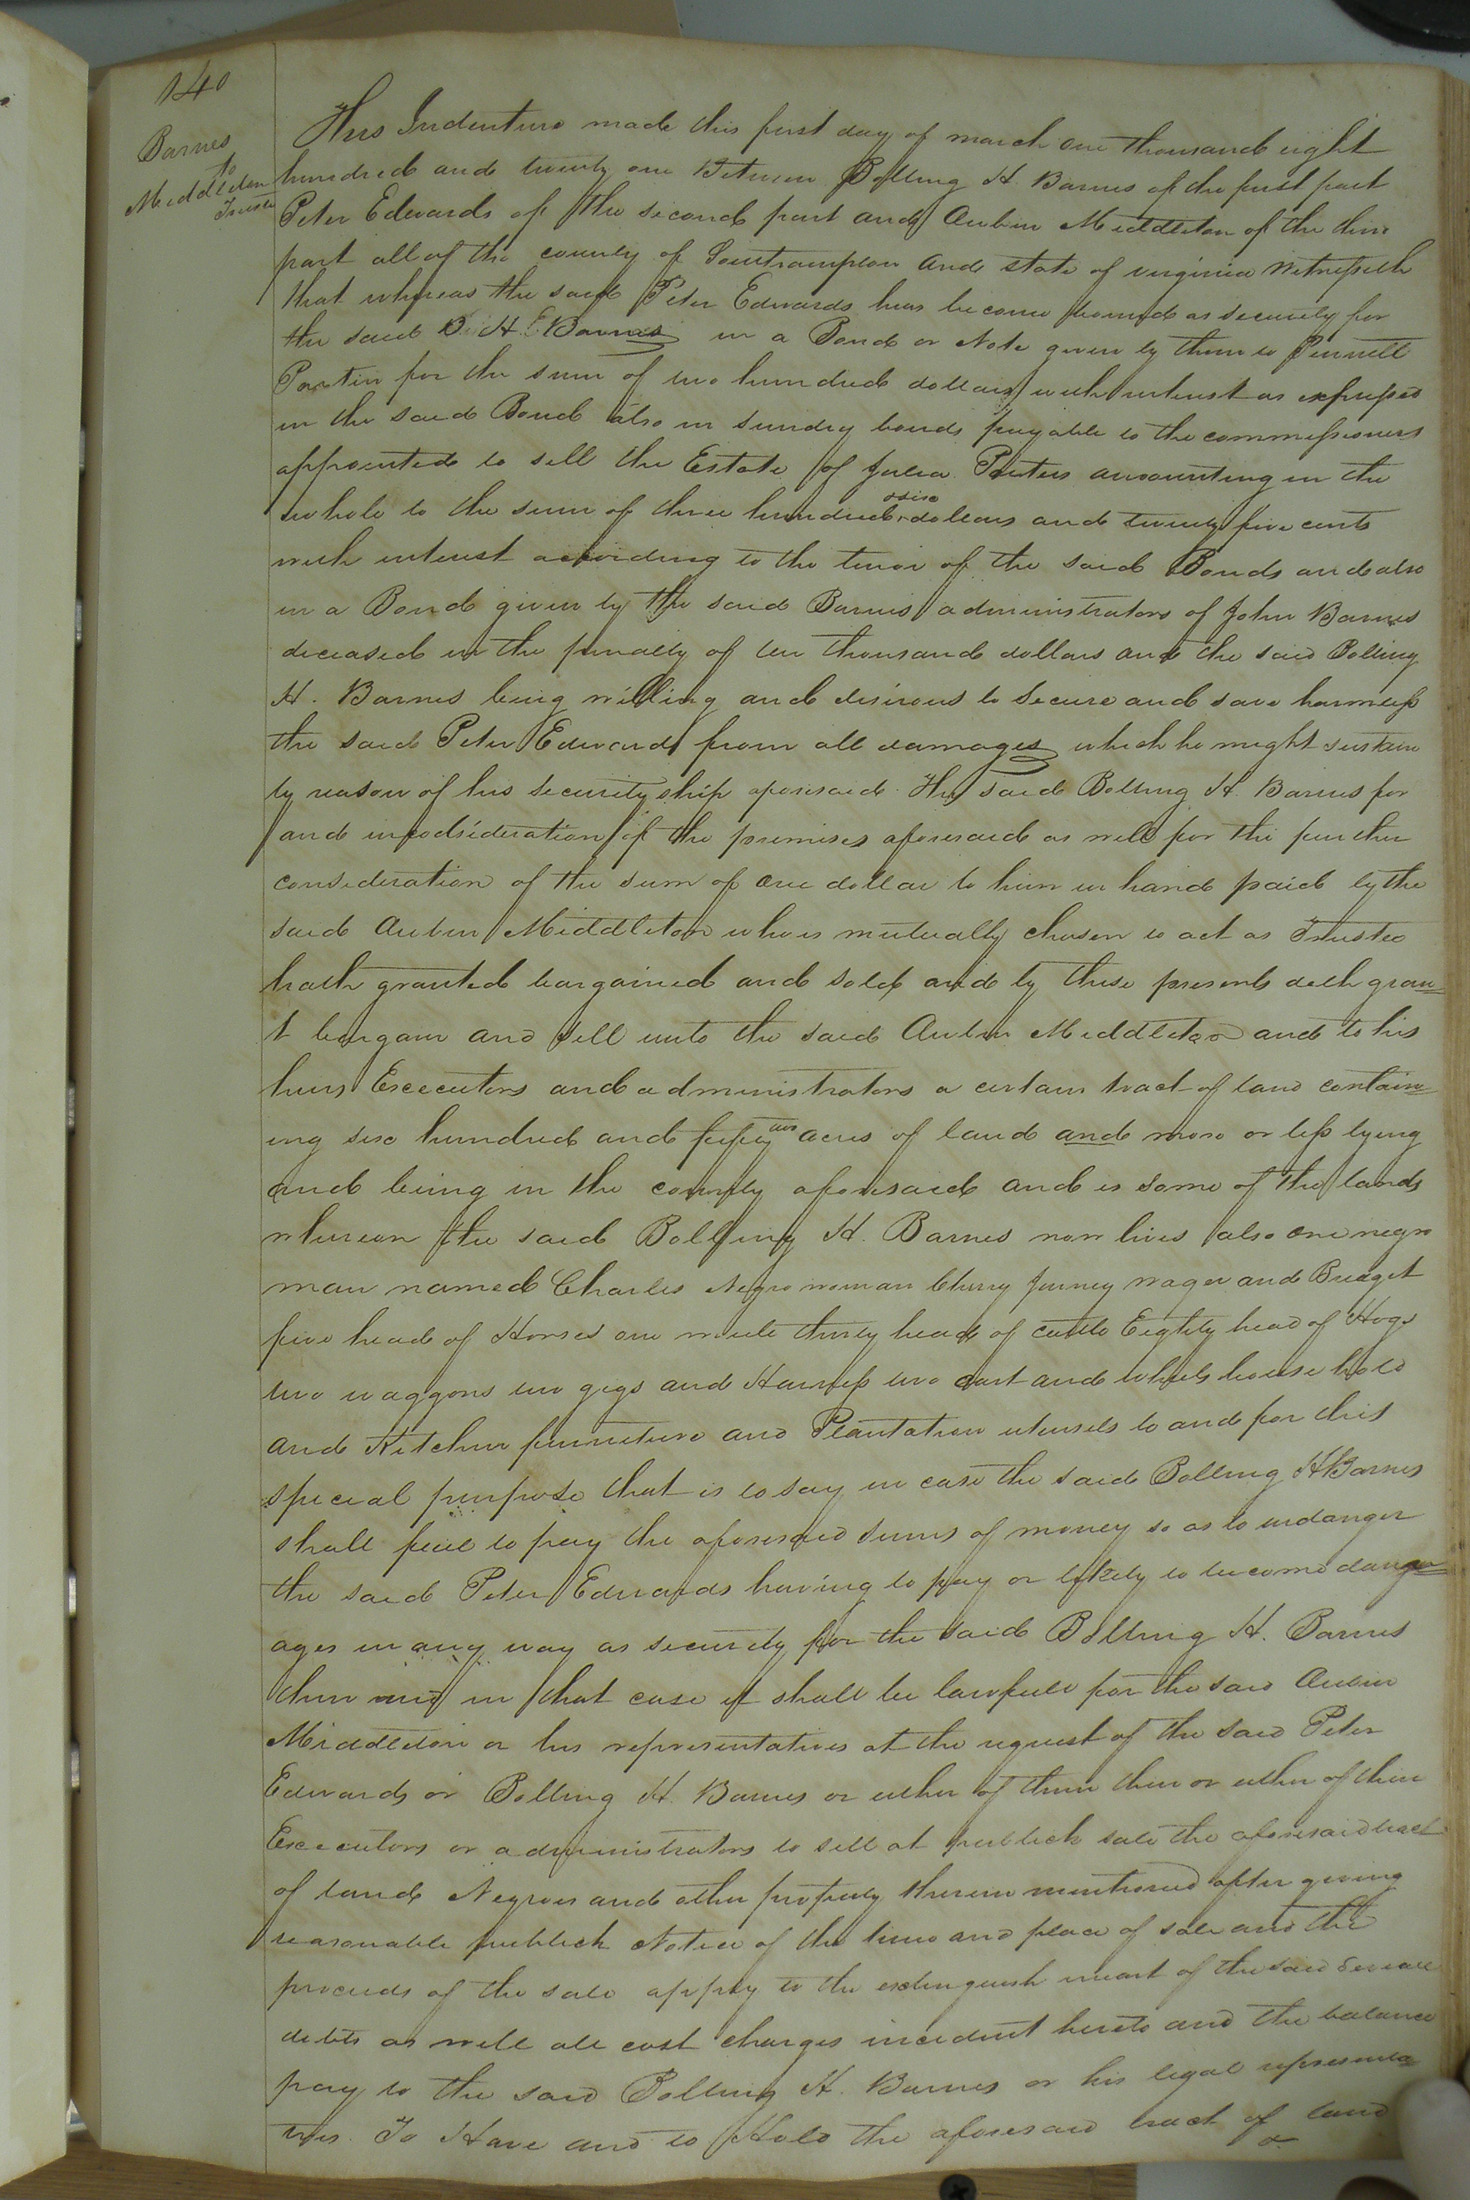 140
Barnes
to
Middleton
Trustee
This Indenture made this first day of march one thousand eight
hundred and twenty one Between Bolling H. Barnes of the first part
Peter Edwards of the second part and Aubin Middleton of the third
part all of the county of Southampton and state of virginia Witnesseth
that whereas the said Peter Edwards has become bound as security for
the said B. H. Barnes in a Bond or Note given by them to
for the sum of two hundred dollars with interest as expressed
in the said Bond also in sundry bonds payable to the commissioners
appointed to sell the Estate of amounting in the
whole to the sum of three hundred & six dollars and twenty five cents
with interest according to the tenor of the said Bonds and also
in a Bond given by the said Barnes administrators of John Barnes
deceased in the penalty of ten thousand dollars and the said Bolling
H. Barnes being willing and desirous to secure and save harmless
the said Peter Edwards from all damages which he might sustain
by reason of his security ship aforesaid. The said Bolling H. Barnes for
and in codsideration of the premises aforesaid as well for the further
consideration of the sum of one dollar to him in hand paid by the
said Aubin Middleton who is mutually chosen to act as Trustee
hath granted bargained and sold and by these presents doth gran
t bargain and sell unto the said Aubin Middleton and to his
heirs Executors and administrators a certain tract of land contain
ing six hundred and fifty two acres of land and more or less lying
and being in the county aforesaid and is some of the lands
whereon the said Bolling H. Barnes now lives also one negro
man named Charles Negro woman Cherry Jenney wager and Bridget
five head of Horses one mule thirty head of cattle Eighty head of Hogs
two waggons two gigs and Harness two cart and wheels house hold
and Kitchen furniture and Plantation utensils to and for this
special purpose that is to say in case the said Bolling H Barnes
shall fail to pay the aforesaid sums of money so as to indanger
the said Peter Edwards having to pay or likely to become
ages in any way as security for the said Bolling H. Barnes
then and in that case it shall be lawfull for the said Aubin
Middleton or his representatives at the request of the said Peter
Edwards or Bolling H. Barnes or either of them their or either of their
Executors or administrators to sell at publick sale the aforesaid tract
of land Negroes and other property therein mentioned after giving
reasonable publick Notice of the time and place of sale and the
proceeds of the sale apply to the extinguish ment of the said severall
debts as well all cost charges incedent hereto and the balance
pay to the said Bolling H. Barnes or his legal representa
tives. To Have and to Hold the aforesaid tract of land